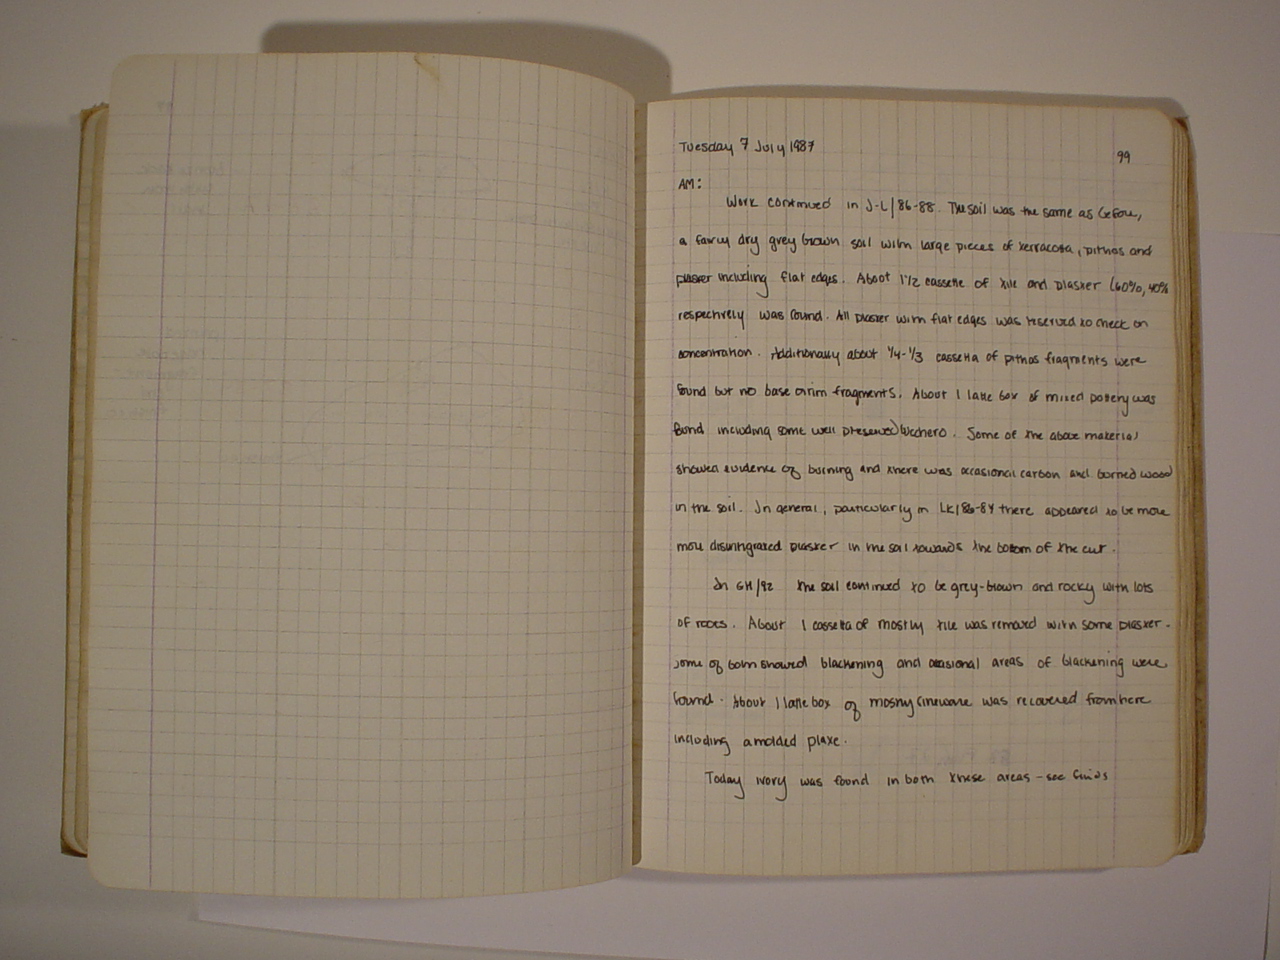 Tuesday 7 July 1987
99
AM:
Work continued in J-L/86-88. The soil was the same as before,
a fairly dry grey brown soil with large pieces of terracotta, pithos and
plaster including flat edges. About 1 1/2 cassette of tile and plaster (60%, 40%
respectively was found. All plaster with flat edges was reserved to check on
concentration. Additionally about 1/4-1/3 cassetta of pithos fragments were
found but no base or rim fragments. About 1 latte box of mixed pottery was
found including some well preserved bucchero. Some of the above material
showed evidence of burning and there was occasional carbon and burned wood
in the soil. In general, particularly in there appeared to be more
more disintigrated plaster in the soil towards the bottom of the cut.
In GH/92 the soil continued to be grey-brown and rocky with lots
of roots. About 1 cassetta of mostly tile was removed with some plaster.
Some of both showed blackening and occasional areas of blackening were
found. About 1 latte box of mostly fineware was recovered from here
including a molded plaxe.
Today ivory was found in both these areas - see finds